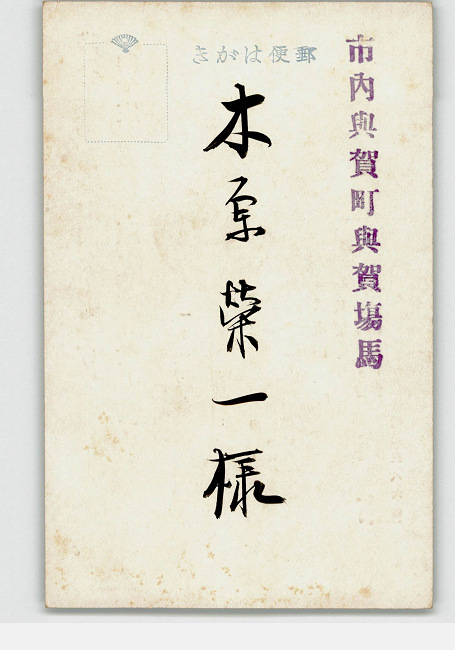 郵便はがき
市内與賀町與賀塲馬
木原榮一様